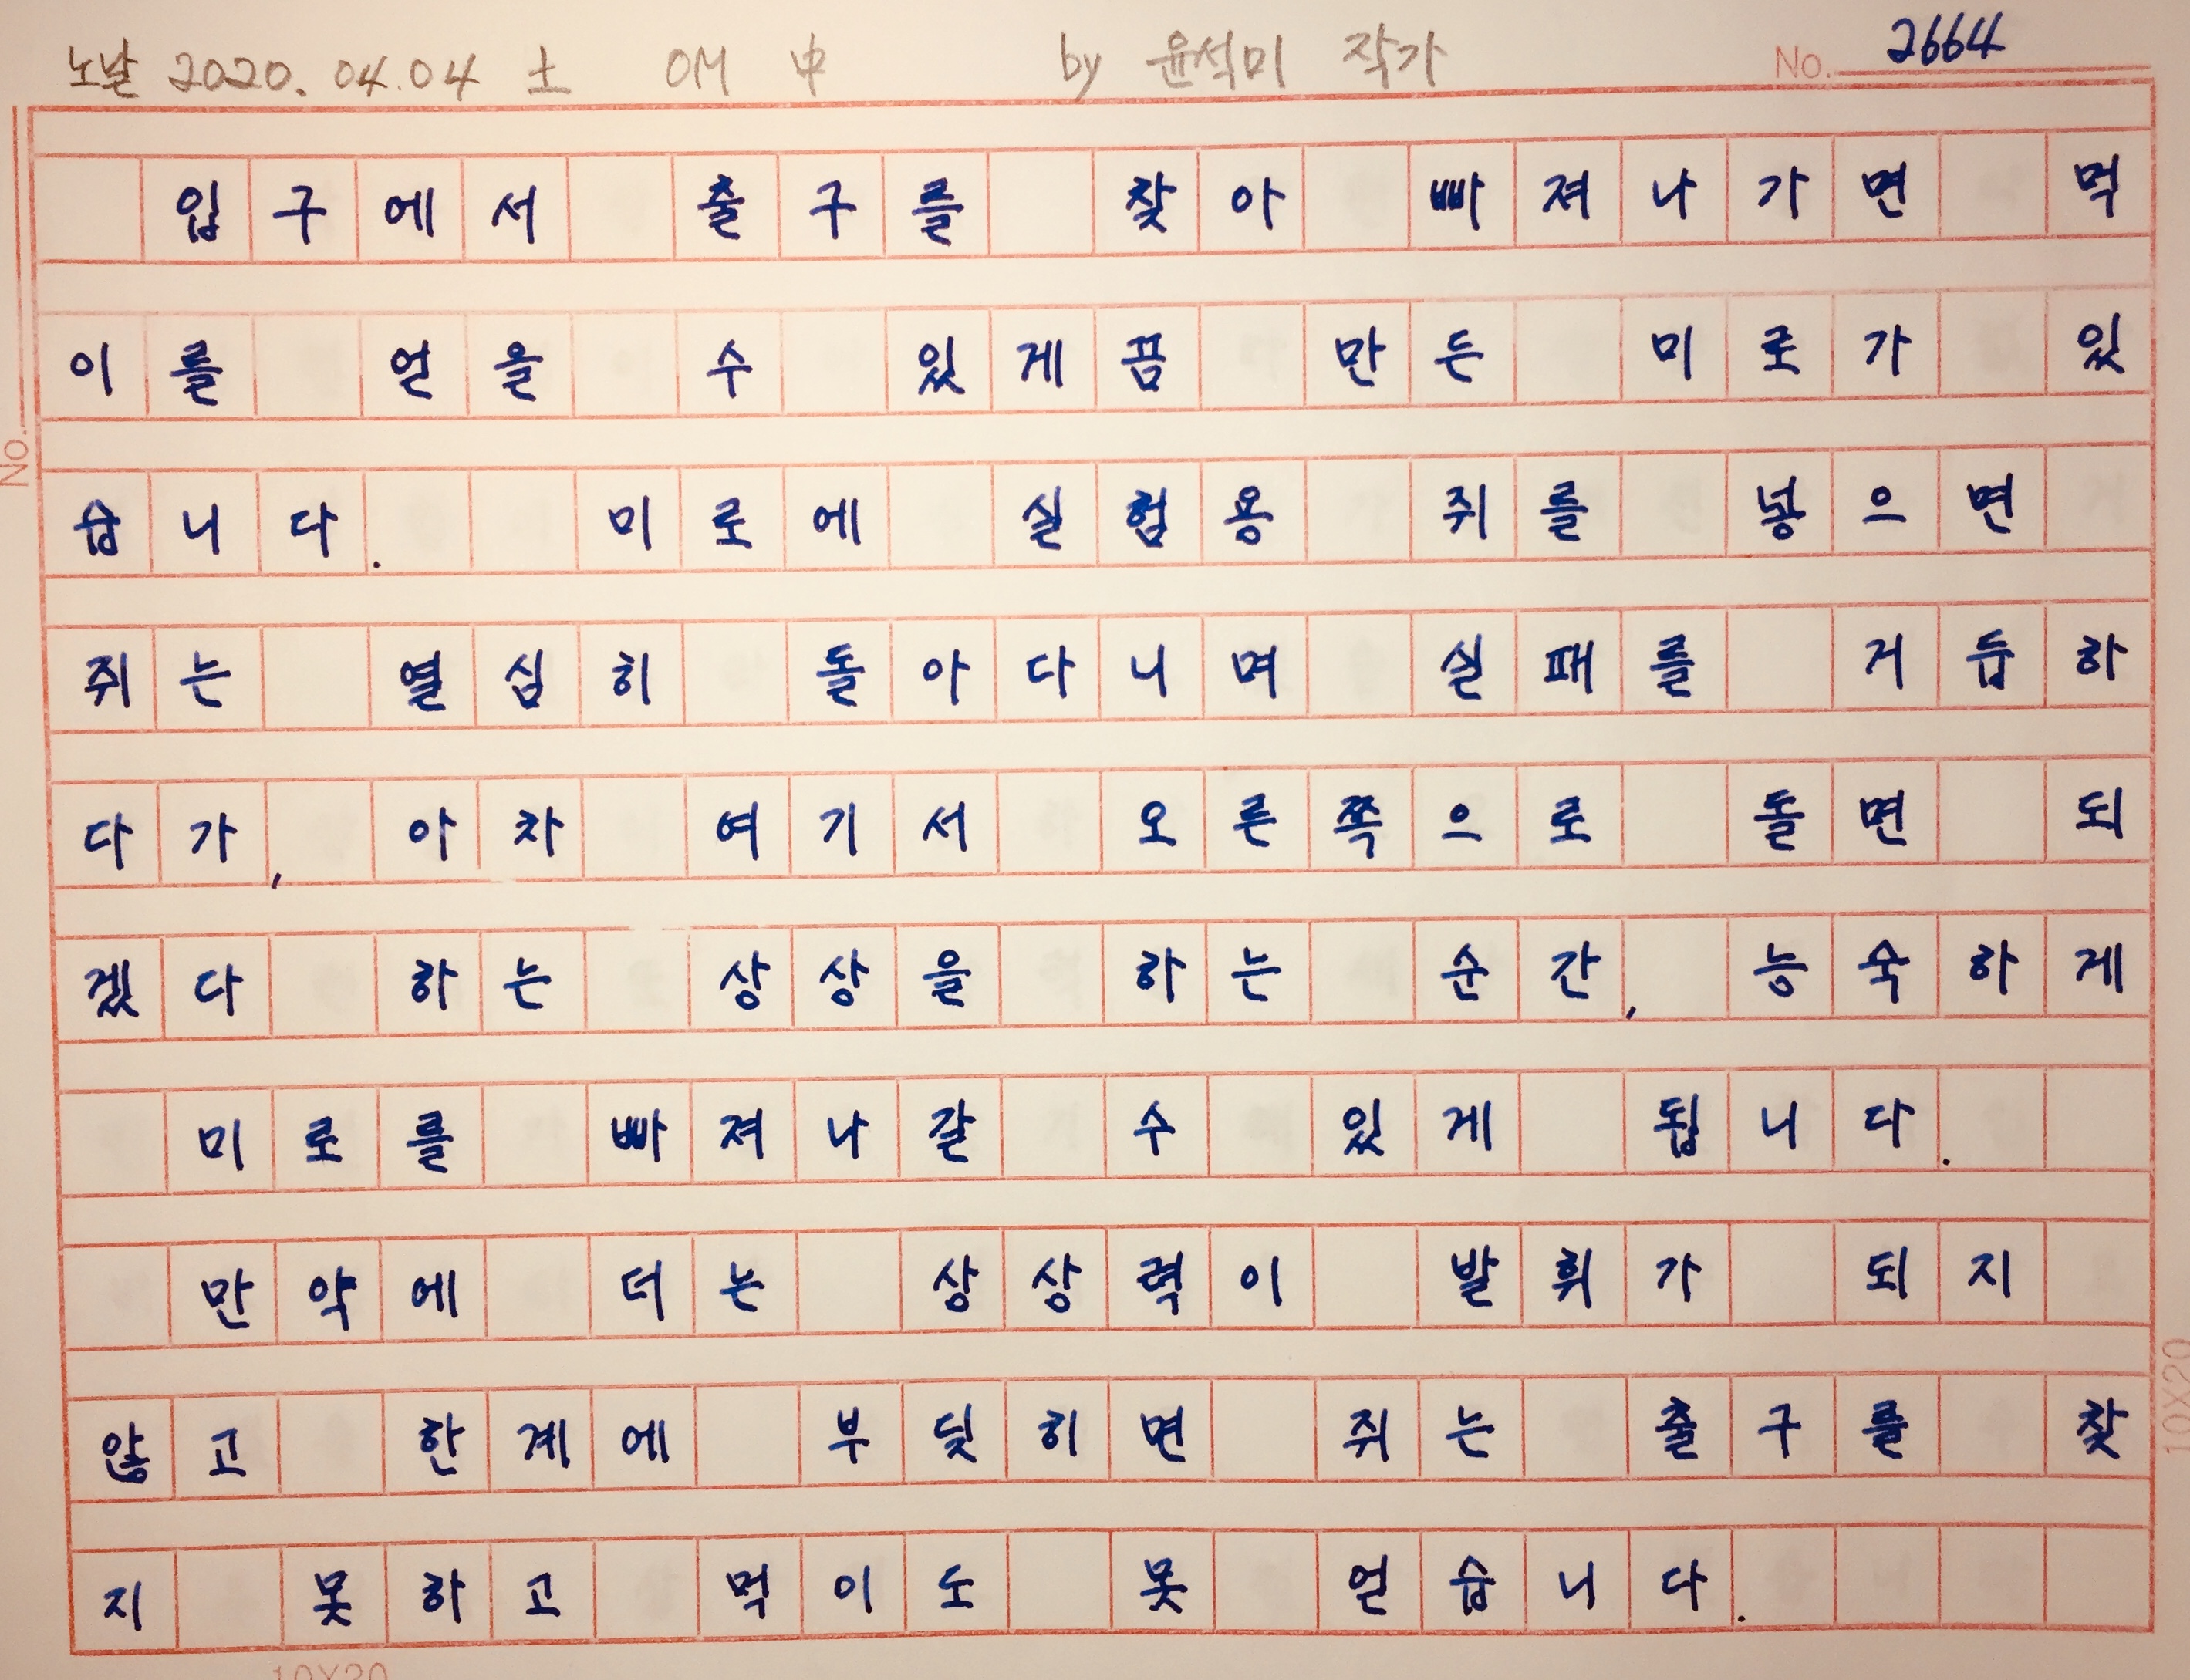 노날 2020. 04. 04 土 OM 中 by 윤석미 작가 No. 2664
입구에서 출구를 찾아 빠져나가면 먹
이를 얻을 수 있게끔 만든 미로가 있
습니다. 미로에 실험용 쥐를 넣으면
쥐는 열심히 돌아다니며 실패를 거듭하
다가, 아차 여기서 오른쪽으로 돌면 되
겠다 하는 상상을 하는 순간, 능숙하게
미로를 빠져나갈 수 있게 됩니다.
만약에 더는 상상력이 발휘가 되지
않고 한계에 부딪히면 쥐는 출구를 찾
지 못하고 먹이도 못 얻습니다.
No.
10X20
10X20